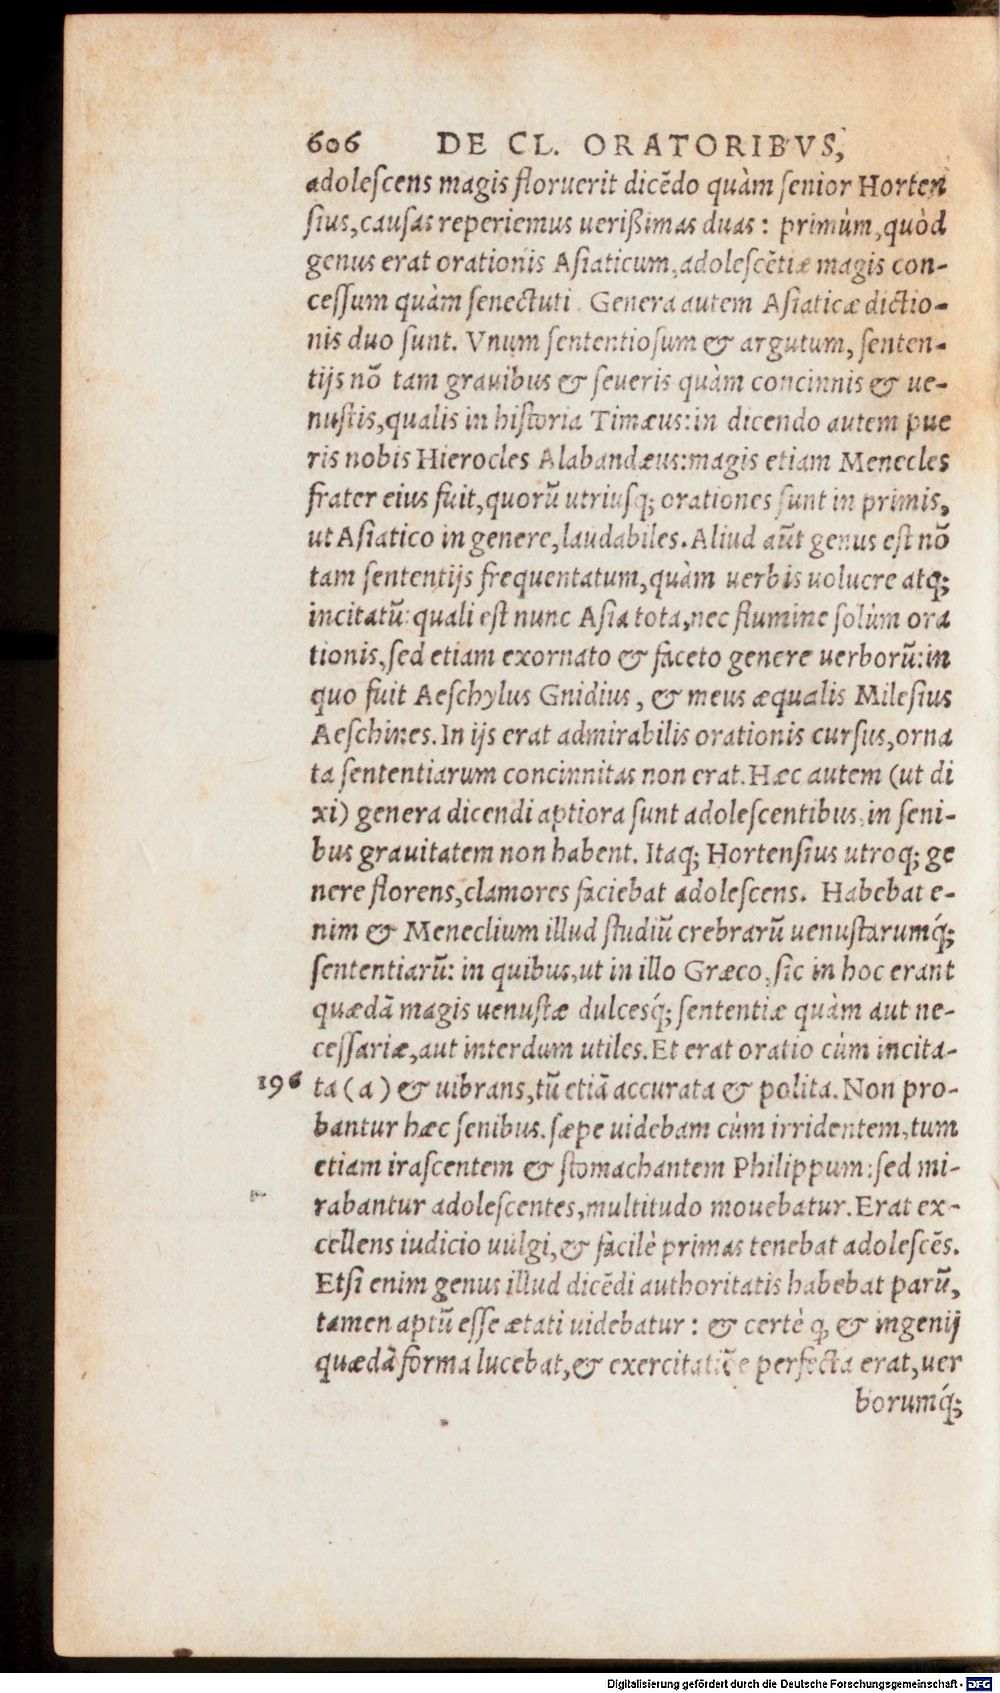 606 DE CL. ORATORIBVS,
adoleſcens magis floruerit dicẽdo quàm ſenior Horten
ſius, cauſas reperiemus ueriſsimas duas: primùm, quòd
genus erat orationis Aſiaticum, adoleſcẽtiæ magis con-
ceſſum quàm ſenectuti. Genera autem Aſiaticæ dictio-
nis duo ſunt. Vnum ſententioſum & argutum, ſenten-
tijs nõ tam grauibus & ſeueris quàm concinnis & ue-
nuſtis, qualis in hiſtoria Timæus: in dicendo autem pue
ris nobis Hierocles Alabandæus: magis etiam Menecles
frater eius fuit, quorũ utriuſq; orationes ſunt in primis,
ut Aſiatico in genere, laudabiles. Aliud aũt genus eſt nõ
tam ſententijs frequentatum, quàm uerbis uolucre atq;
incitatũ: quali eſt nunc Aſia tota, nec flumine ſolùm ora
tionis, ſed etiam exornato & faceto genere uerborũ: in
quo fuit Aeſchylus Gnidius, & meus æqualis Mileſius
Aeſchines. In ijs erat admirabilis orationis curſus, orna
ta ſententiarum concinnitas non erat. Hæc autem (ut di
xi) genera dicendi aptiora ſunt adoleſcentibus, in ſeni-
bus grauitatem non habent. Itaq; Hortenſius utroq; ge
nere florens, clamores faciebat adoleſcens. Habebat e-
nim & Meneclium illud ſtudiũ crebrarũ uenuſtarumq́;
ſententiarũ: in quibus, ut in illo Græco, ſic in hoc erant
quædã magis uenuſtæ dulcesq́; ſententiæ quàm aut ne-
ceſſariæ, aut interdum utiles. Et erat oratio cùm incita-
196 ta (a) & uibrans, tũ etiã accurata & polita. Non pro-
bantur hæc ſenibus. ſæpe uidebam cùm irridentem, tum
etiam iraſcentem & ſtomachantem Philippum: ſed mi-
rabantur adoleſcentes, multitudo mouebatur. Erat ex-
cellens iudicio uulgi, & facilè primas tenebat adoleſcẽs.
Etſi enim genus illud dicẽdi authoritatis habebat parũ,
tamen aptũ eſſe ætati uidebatur: & certè q, & ingenij
quædã forma lucebat, & perfecta erat, uer
borumq́;
Digitalisierung gefördert durch die Deutsche Forschungsgemeinschaft - DFG